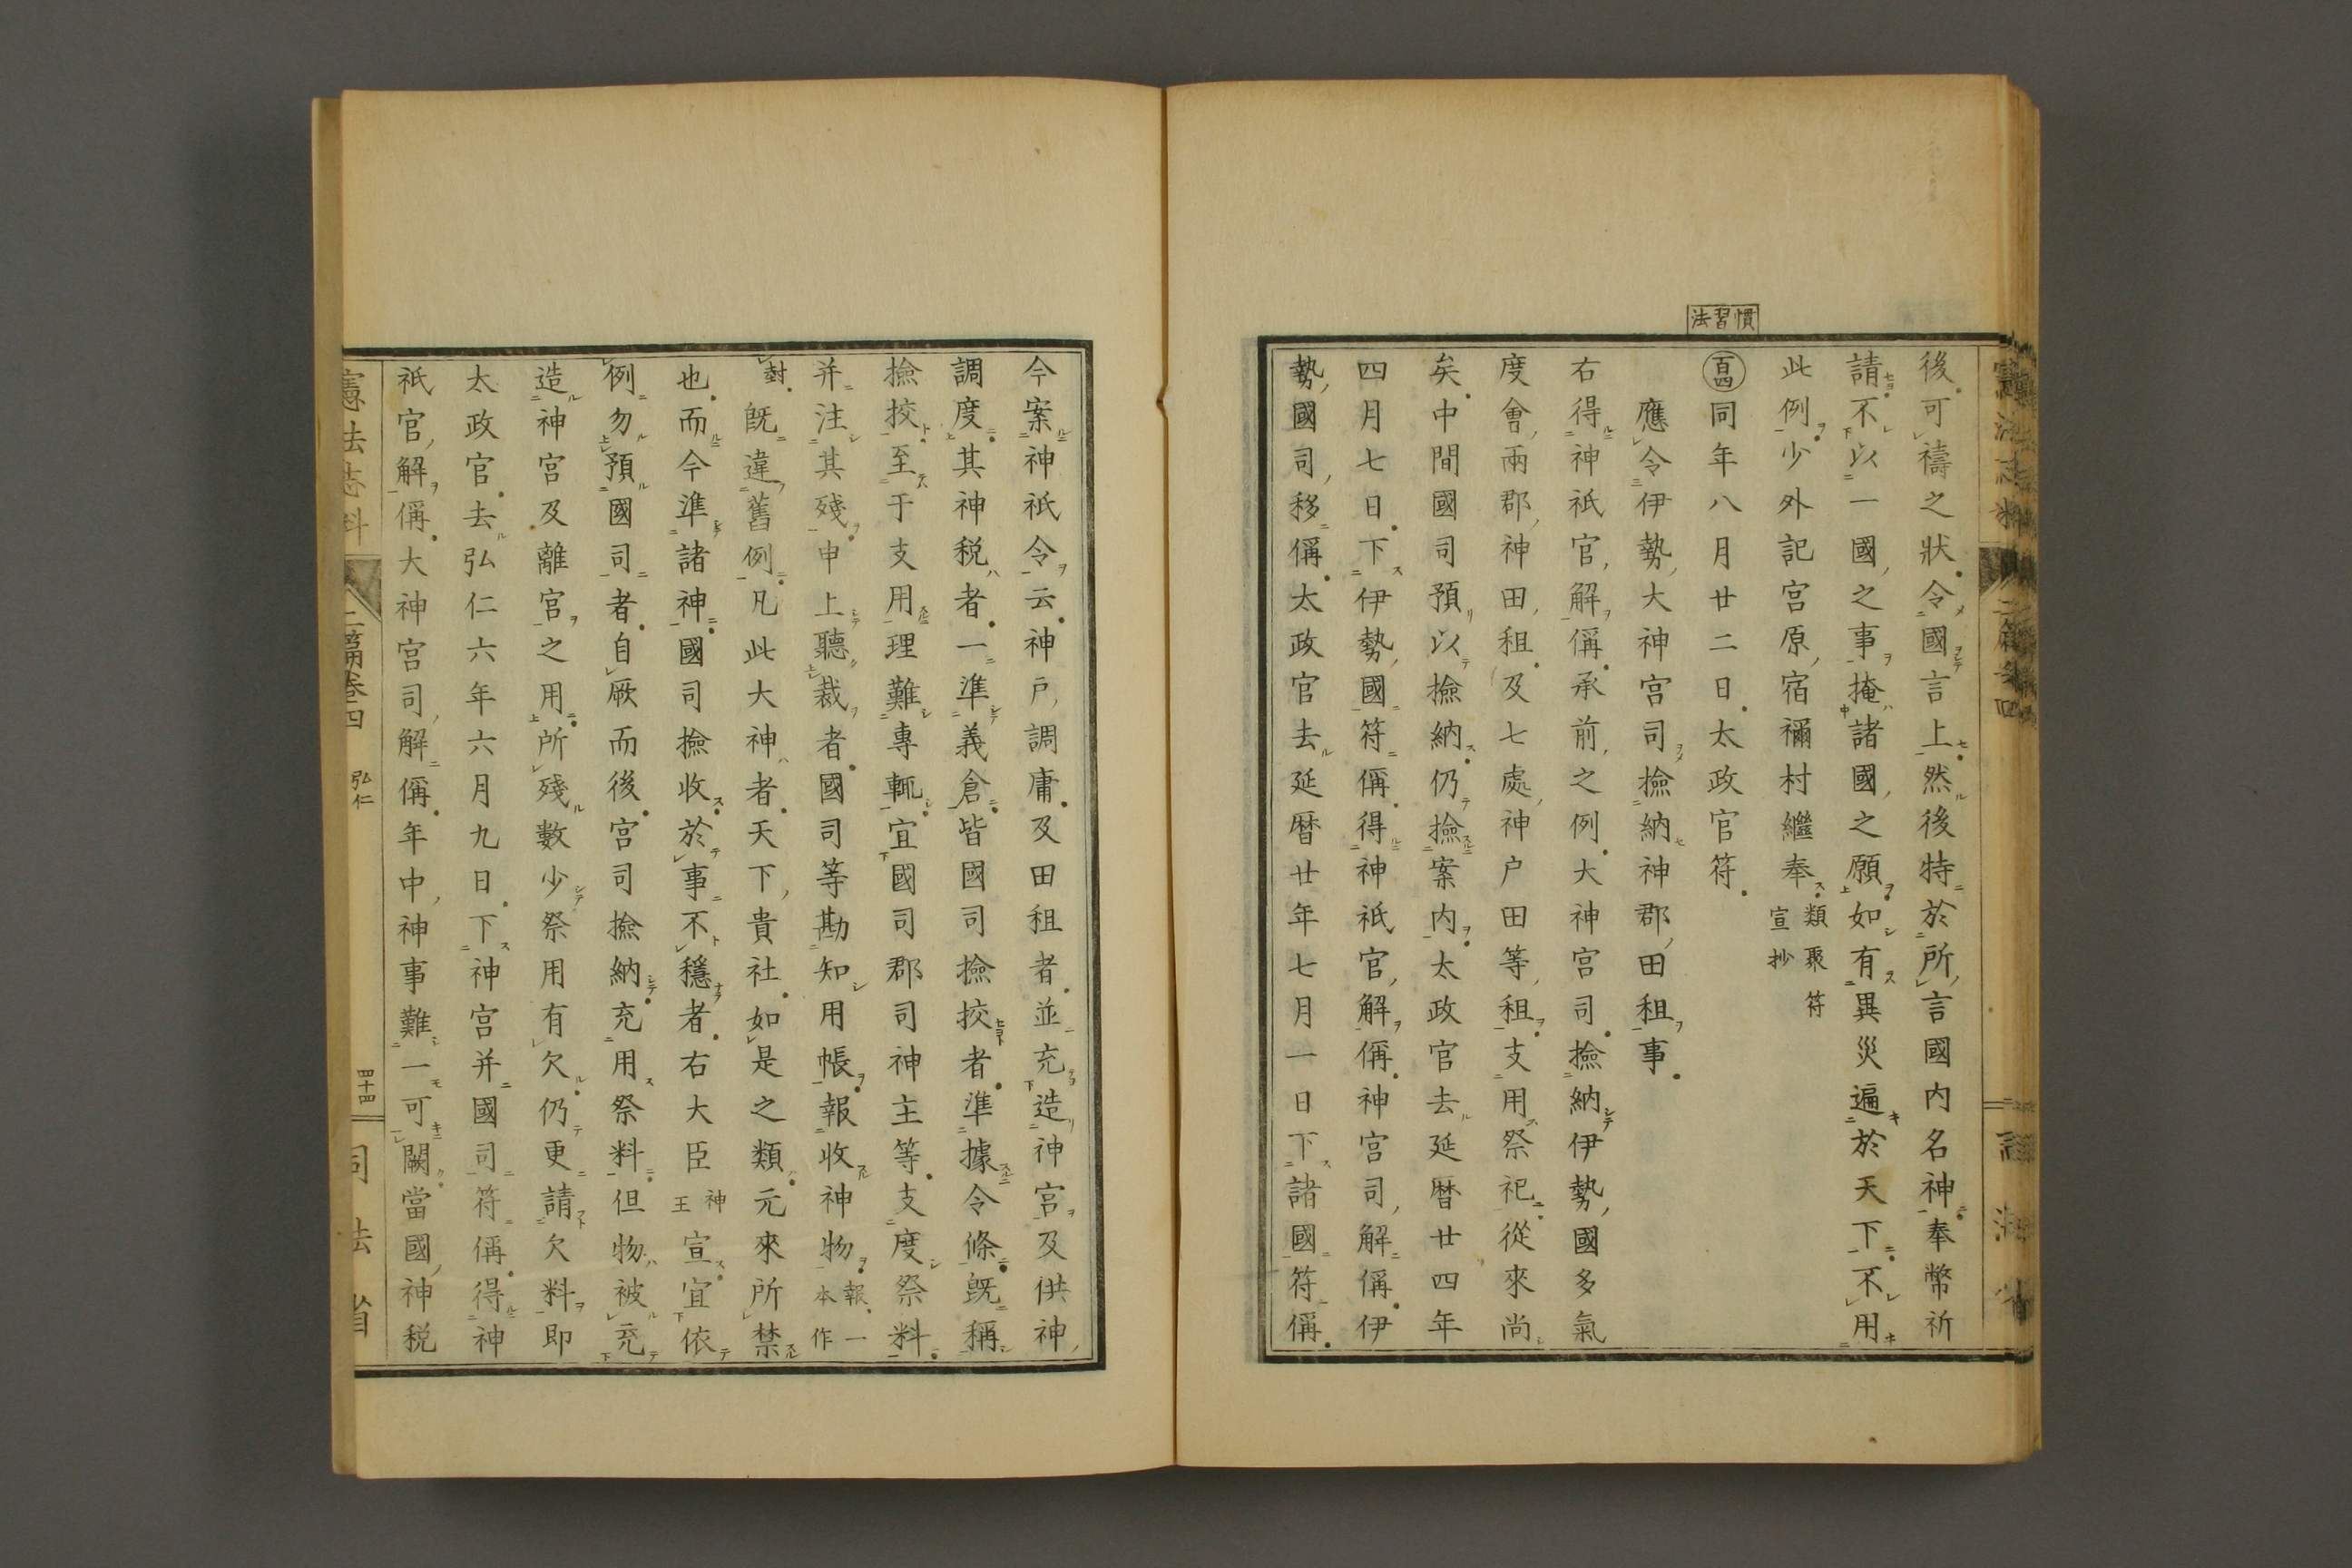 慣習法
後可禱之狀令國言上然後特於所言國内名神奉幣祈
請不以一國之事掩諸國之願如有異災遍於天下不用
此例少外記宮原宿禰村繼奉類聚符宣抄
百四同年八月廿二日太政官符
應令伊勢大神宮司撿納神郡田租事
右得神祇官解偁承前之例大神宮司撿納伊勢國多氣
度會兩郡神田租及七處神戸田等租支用祭祀從來尚
矣中間國司預以撿納仍撿案内太政官去延曆廿四年
四月七日下伊勢國符偁得神祇官解偁神宮司解偁伊
勢國司移偁太政官去延曆廿年七月一日下諸國符偁
今案神祇令云神戸調庸及田租者並充造神宮及供神
調度其神税者一準義倉皆國司撿挍者準據令條旣稱
撿挍至于支用理難專輙宜國司郡司神主等支度祭料
并注其殘申上聽裁者國司等勘知用帳報收神物報一本作
封旣違舊例凡此大神者天下貴社如是之類元來所禁
也而今準諸神國司撿收於事不穩者右大臣神王宣宜依
例勿預國司者自厥而後宮司撿納充用祭料但物被充
造神宮及離宮之用所殘數少祭用有欠仍更請欠料即
太政官去弘仁六年六月九日下神宮并國司符偁得神
祇官解偁大神宮司解偁年中神事難一可闕當國神税
憲法志料
二篇卷四
弘仁
四十四
司法省